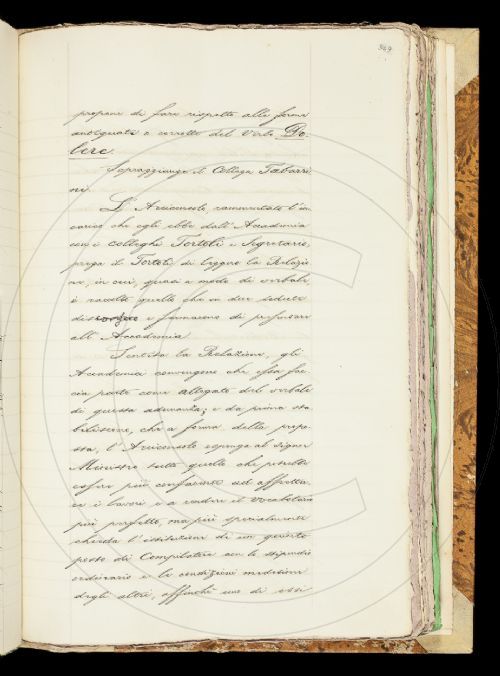 369
propone di fare rispetto alle forme
antiquate e corrotte del Verbo Do-
lere.
Sopraggiunge il Collega Tabarri-
ni.
L'Arciconsolo, rammentato l'in-
carico che egli ebbe dall'Accademia
coi colleghi Tortoli e Segretario,
prega il Tortoli di leggere la Relazio-
ne, in cui, quasi a modo di verbale
è raccolto quello che in due sedute
e formarono di
all'Accademia.
Sentita la Relazione, gli
Accademici convengono che essa fac-
cia parte come allegato del verbale
di questa adunanza; e da prima sta-
biliscono, che a forma della propo-
sta, l'Arciconsolo esponga al Signor
Ministro tutto quello che potrebbe
essere più conducente ad affretta-
re i lavori e a rendere il Vocabolario
più perfetto, ma più specialmente
chieda l'istituzione di un quarto
posto di Compilatore con lo stipendio
ordinario e le condizioni medesime
degli altri, affinchè uno di essi